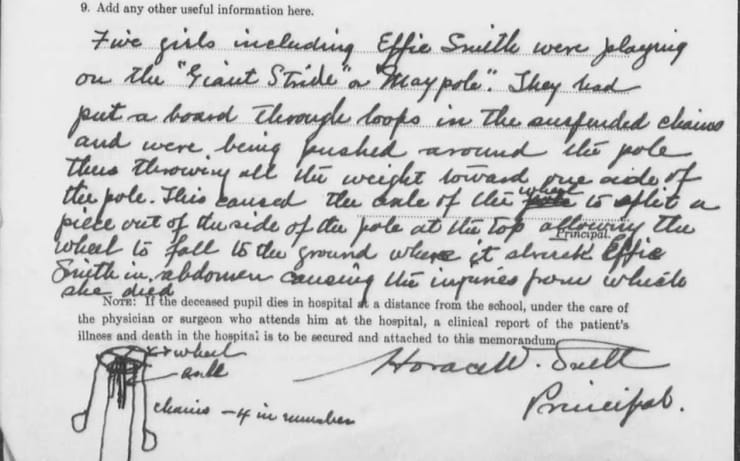 9. Add any other useful information here.
Five girls including Effie Smith were playing
on the "Giant Stride" or "May pole". They had
put a board through loops in the suspended chains
and were being pushed around the pole
thus throwing all the weight toward one side of
the pole. This caused the axle of the wheel to split a
piece out of the side of the pole at the top allowing the
Principal.
wheel to fall to the ground where it struck Effie
Smith in abdomen causing the injuries from which
she died
NOTE: If the deceased pupil dies in hospital at a distance from the school, under the care of
the physician or surgeon who attends him at the hospital, a clinical report of the patient's
illness and death in the hospital is to be secured and attached to this memorandum
wheel
axle
chains – 4 in number
Horace W.
Principal.